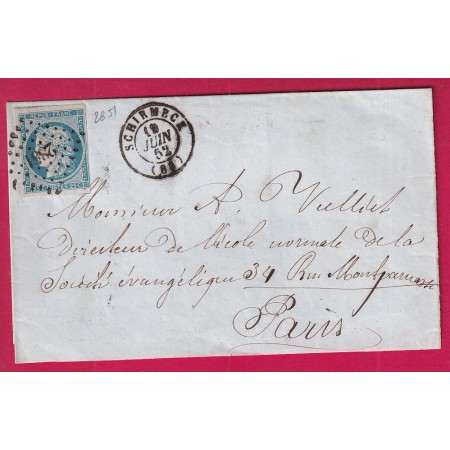 REPUB. FRANC.
2851
SCHIRMECK
19
JUIN
52
(88)
Monsieur A. Vulliet
Directeur de l'école normale de la
Société évangélique 34 Rue Montparnasse
Paris